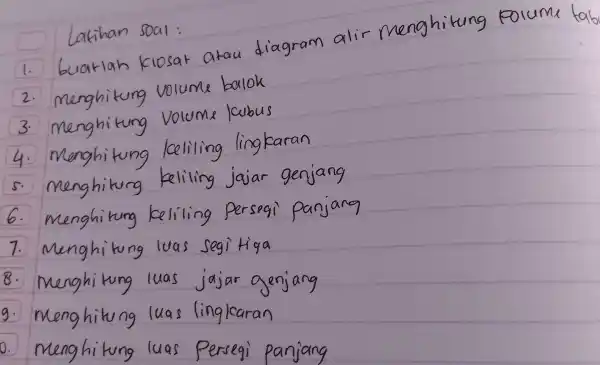 Latihan soal :
1. buatlah klosat atau diagram alir menghitung volume tab
2. menghitung volume balok
3. menghitung volume kubus
4. menghitung keliling lingkaran
5. menghitung keliling jajar genjang
6. menghitung keliling persegi panjang
7. menghitung luas segi tiga
8. menghitung luas jajar genjang
9. menghitung luas lingkaran
0. menghitung luas persegi panjang